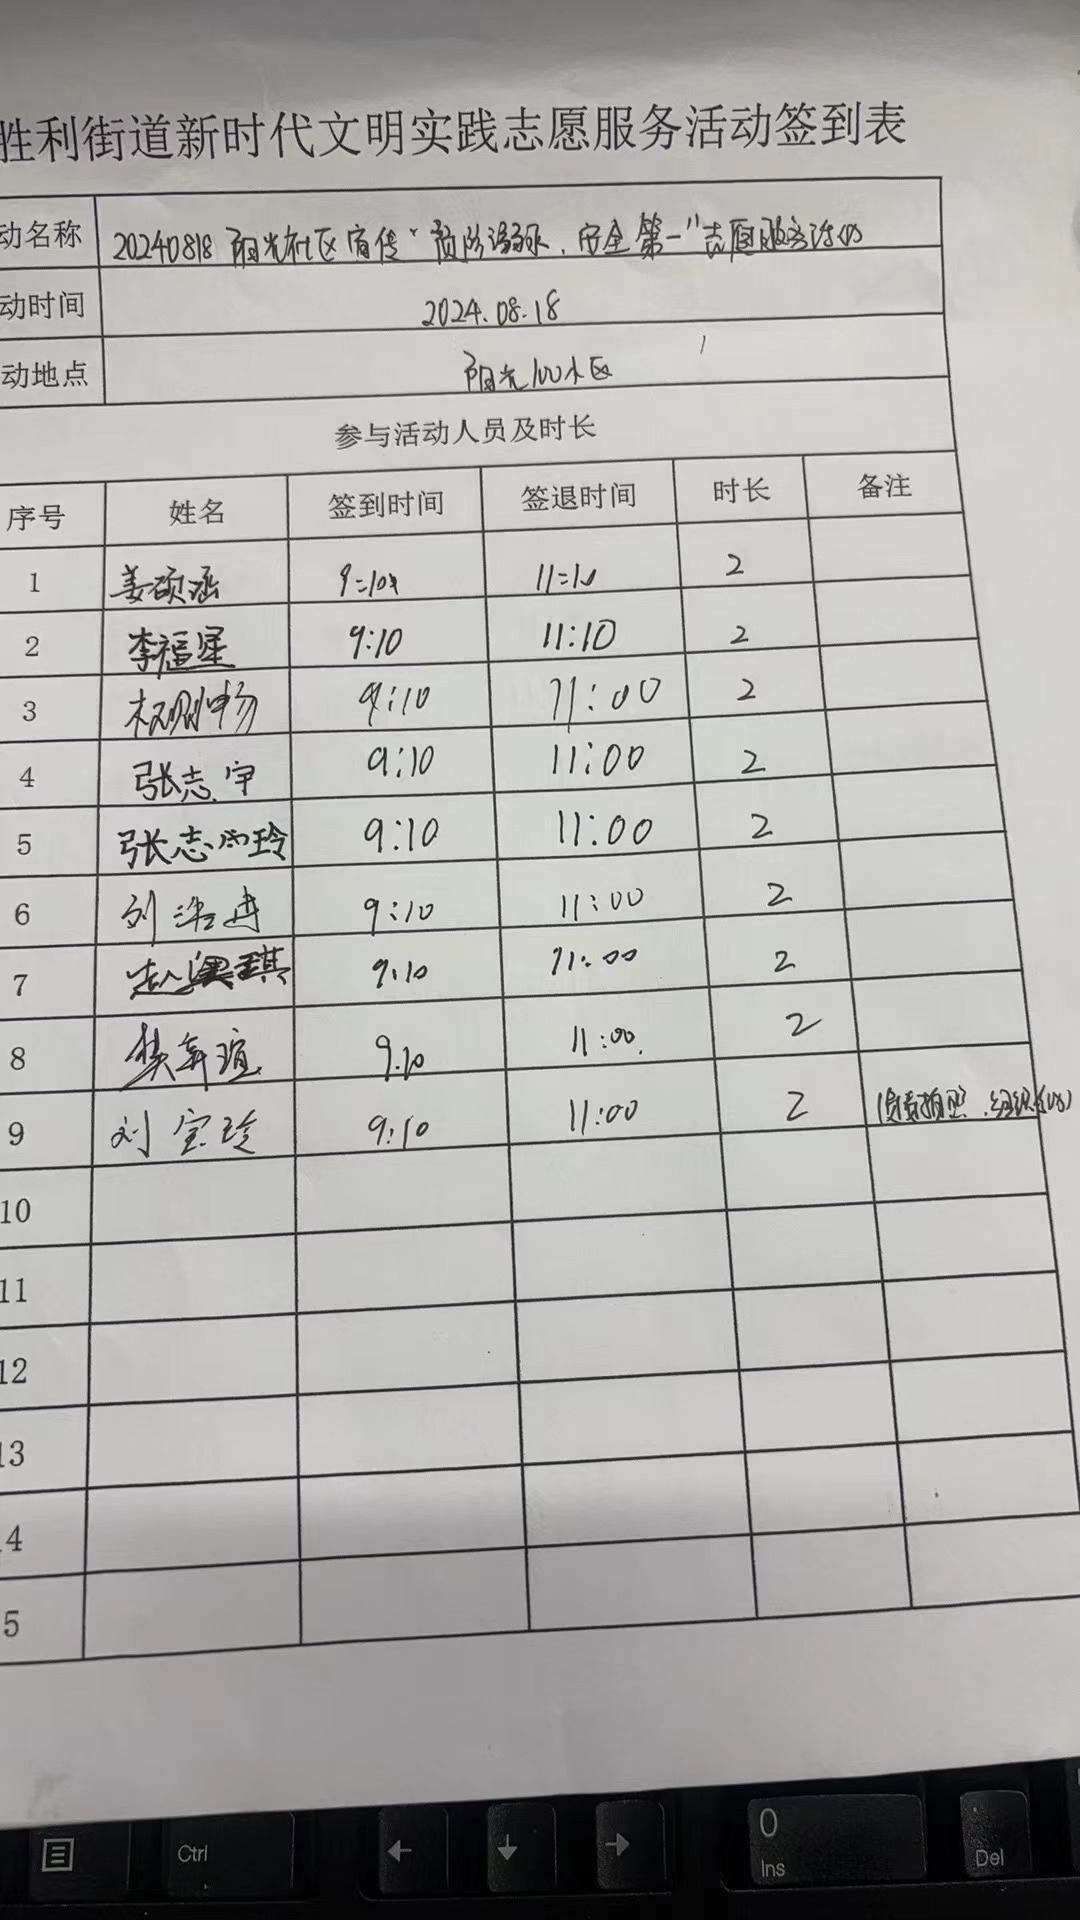 胜利街道新时代文明实践志愿服务活动签到表
动名称 20240818 阳光社区宣传“预防溺水、安全第一”志愿服务活动
动时间 2024.08.18
动地点 阳光100小区
参与活动人员及时长
序号 姓名 签到时间 签退时间 时长 备注
1 姜硕涵 9:10 11:10 2
2 李福星 9:10 11:10 2
3 9:10 11:00 2
4 张志宇 9:10 11:00 2
5 张志 玲 9:10 11:00 2
6 刘 9:10 11:00 2
7 赵 琪 9:10 11:00 2
8 樊 谊 9:10 11:00 2
9 刘宝玲 9:10 11:00 2 负责拍照、组织活动
10
11
12
13
4
5
Ctrl ← ↓ → 0 Ins Del